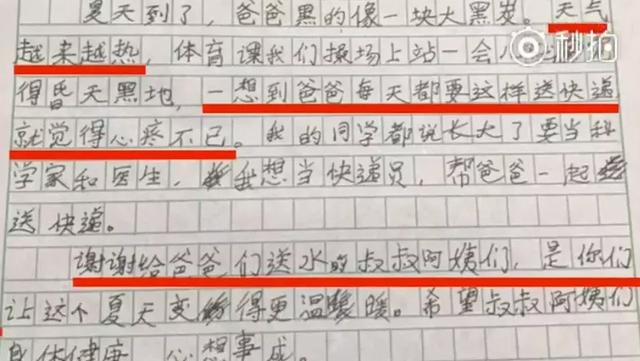 夏天到了，爸爸黑的像一块大黑炭。天气
越来越热，体育课我们操场上站一会儿
秒拍
得昏天黑地，一想到爸爸每天都要这样送快递
就觉得心疼不已。我的同学都说长大了要当科
学家和医生，我想当快递员，帮爸爸一起
送快递。
谢谢给爸爸们送水的叔叔阿姨们，是你们
让这个夏天变得更温暖。希望叔叔阿姨们
身体健康，心想事成。